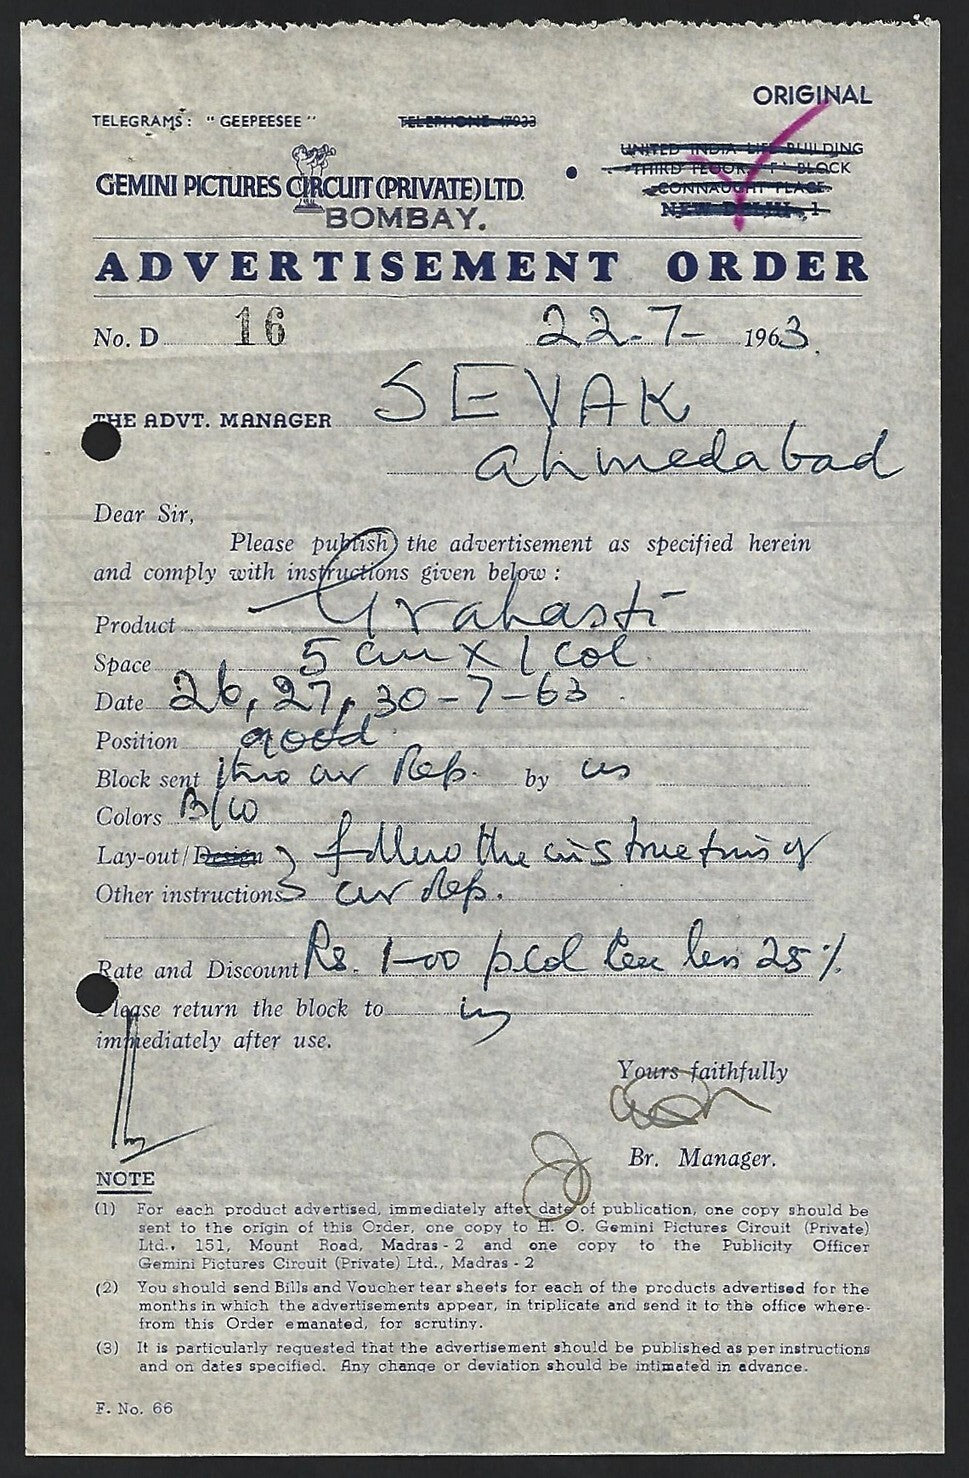 ORIGINAL
TELEGRAMS: "GEEPEESEE" TELEPHONE 47933
UNITED INDIA LIFE BUILDING
THIRD FLOOR 'F' BLOCK
CONNAUGHT PLACE
NEW DELHI, 1
GEMINI PICTURES CIRCUIT (PRIVATE) LTD.
BOMBAY.
ADVERTISEMENT ORDER
No. D 16 22-7- 1963.
THE ADVT. MANAGER SEVAK
Ahmedabad
Dear Sir,
Please publish the advertisement as specified herein
and comply with instructions given below :
Product Grahasti
Space 5 cm x 1 col.
Date 26, 27, 30-7-63.
Position good.
Block sent thro our Rep. by us
Colors B/W
Lay-out/Design follow the instructions of
Other instructions our Rep.
Rate and Discount Rs. 1-00 p col less 25%.
Please return the block to us
immediately after use.
Yours faithfully
Br. Manager.
NOTE
(1) For each product advertised, immediately after date of publication, one copy should be
sent to the origin of this Order, one copy to H. O. Gemini Pictures Circuit (Private)
Ltd., 151, Mount Road, Madras-2 and one copy to the Publicity Officer
Gemini Pictures Circuit (Private) Ltd., Madras-2
(2) You should send Bills and Voucher tear sheets for each of the products advertised for the
months in which the advertisements appear, in triplicate and send it to the office where-
from this Order emanated, for scrutiny.
(3) It is particularly requested that the advertisement should be published as per instructions
and on dates specified. Any change or deviation should be intimated in advance.
F. No. 66